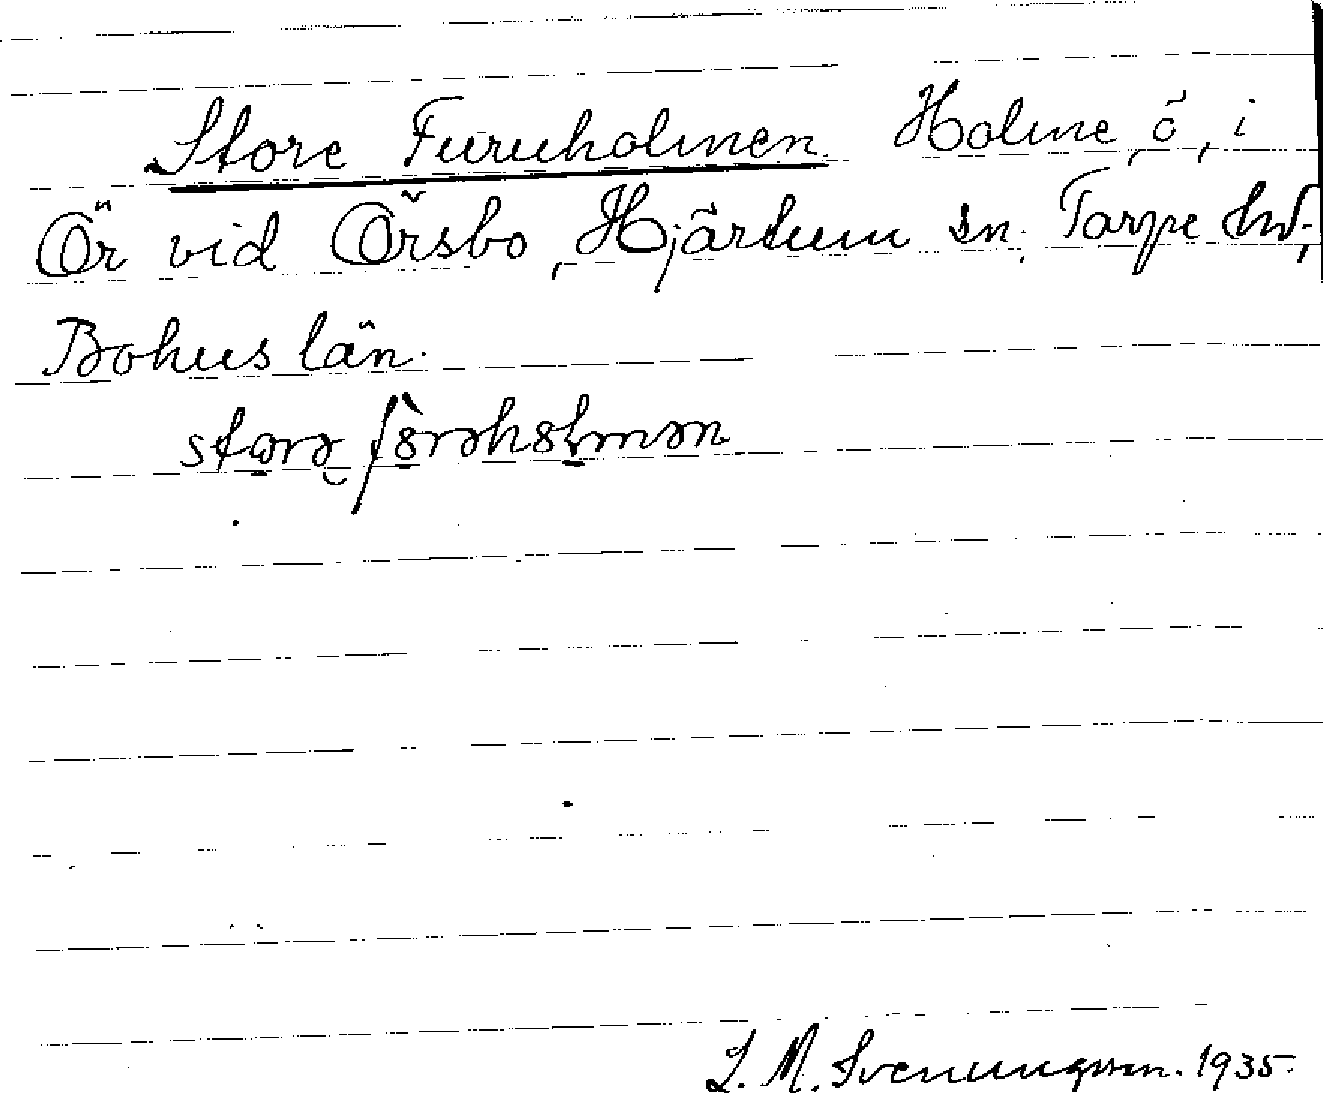 Store Furuholmen. Holme, ö, i
Ör vid Örsbo, Hjärtum sn. Tarpe hd,
Bohus län.
S. M. Svenungsson. 1935.